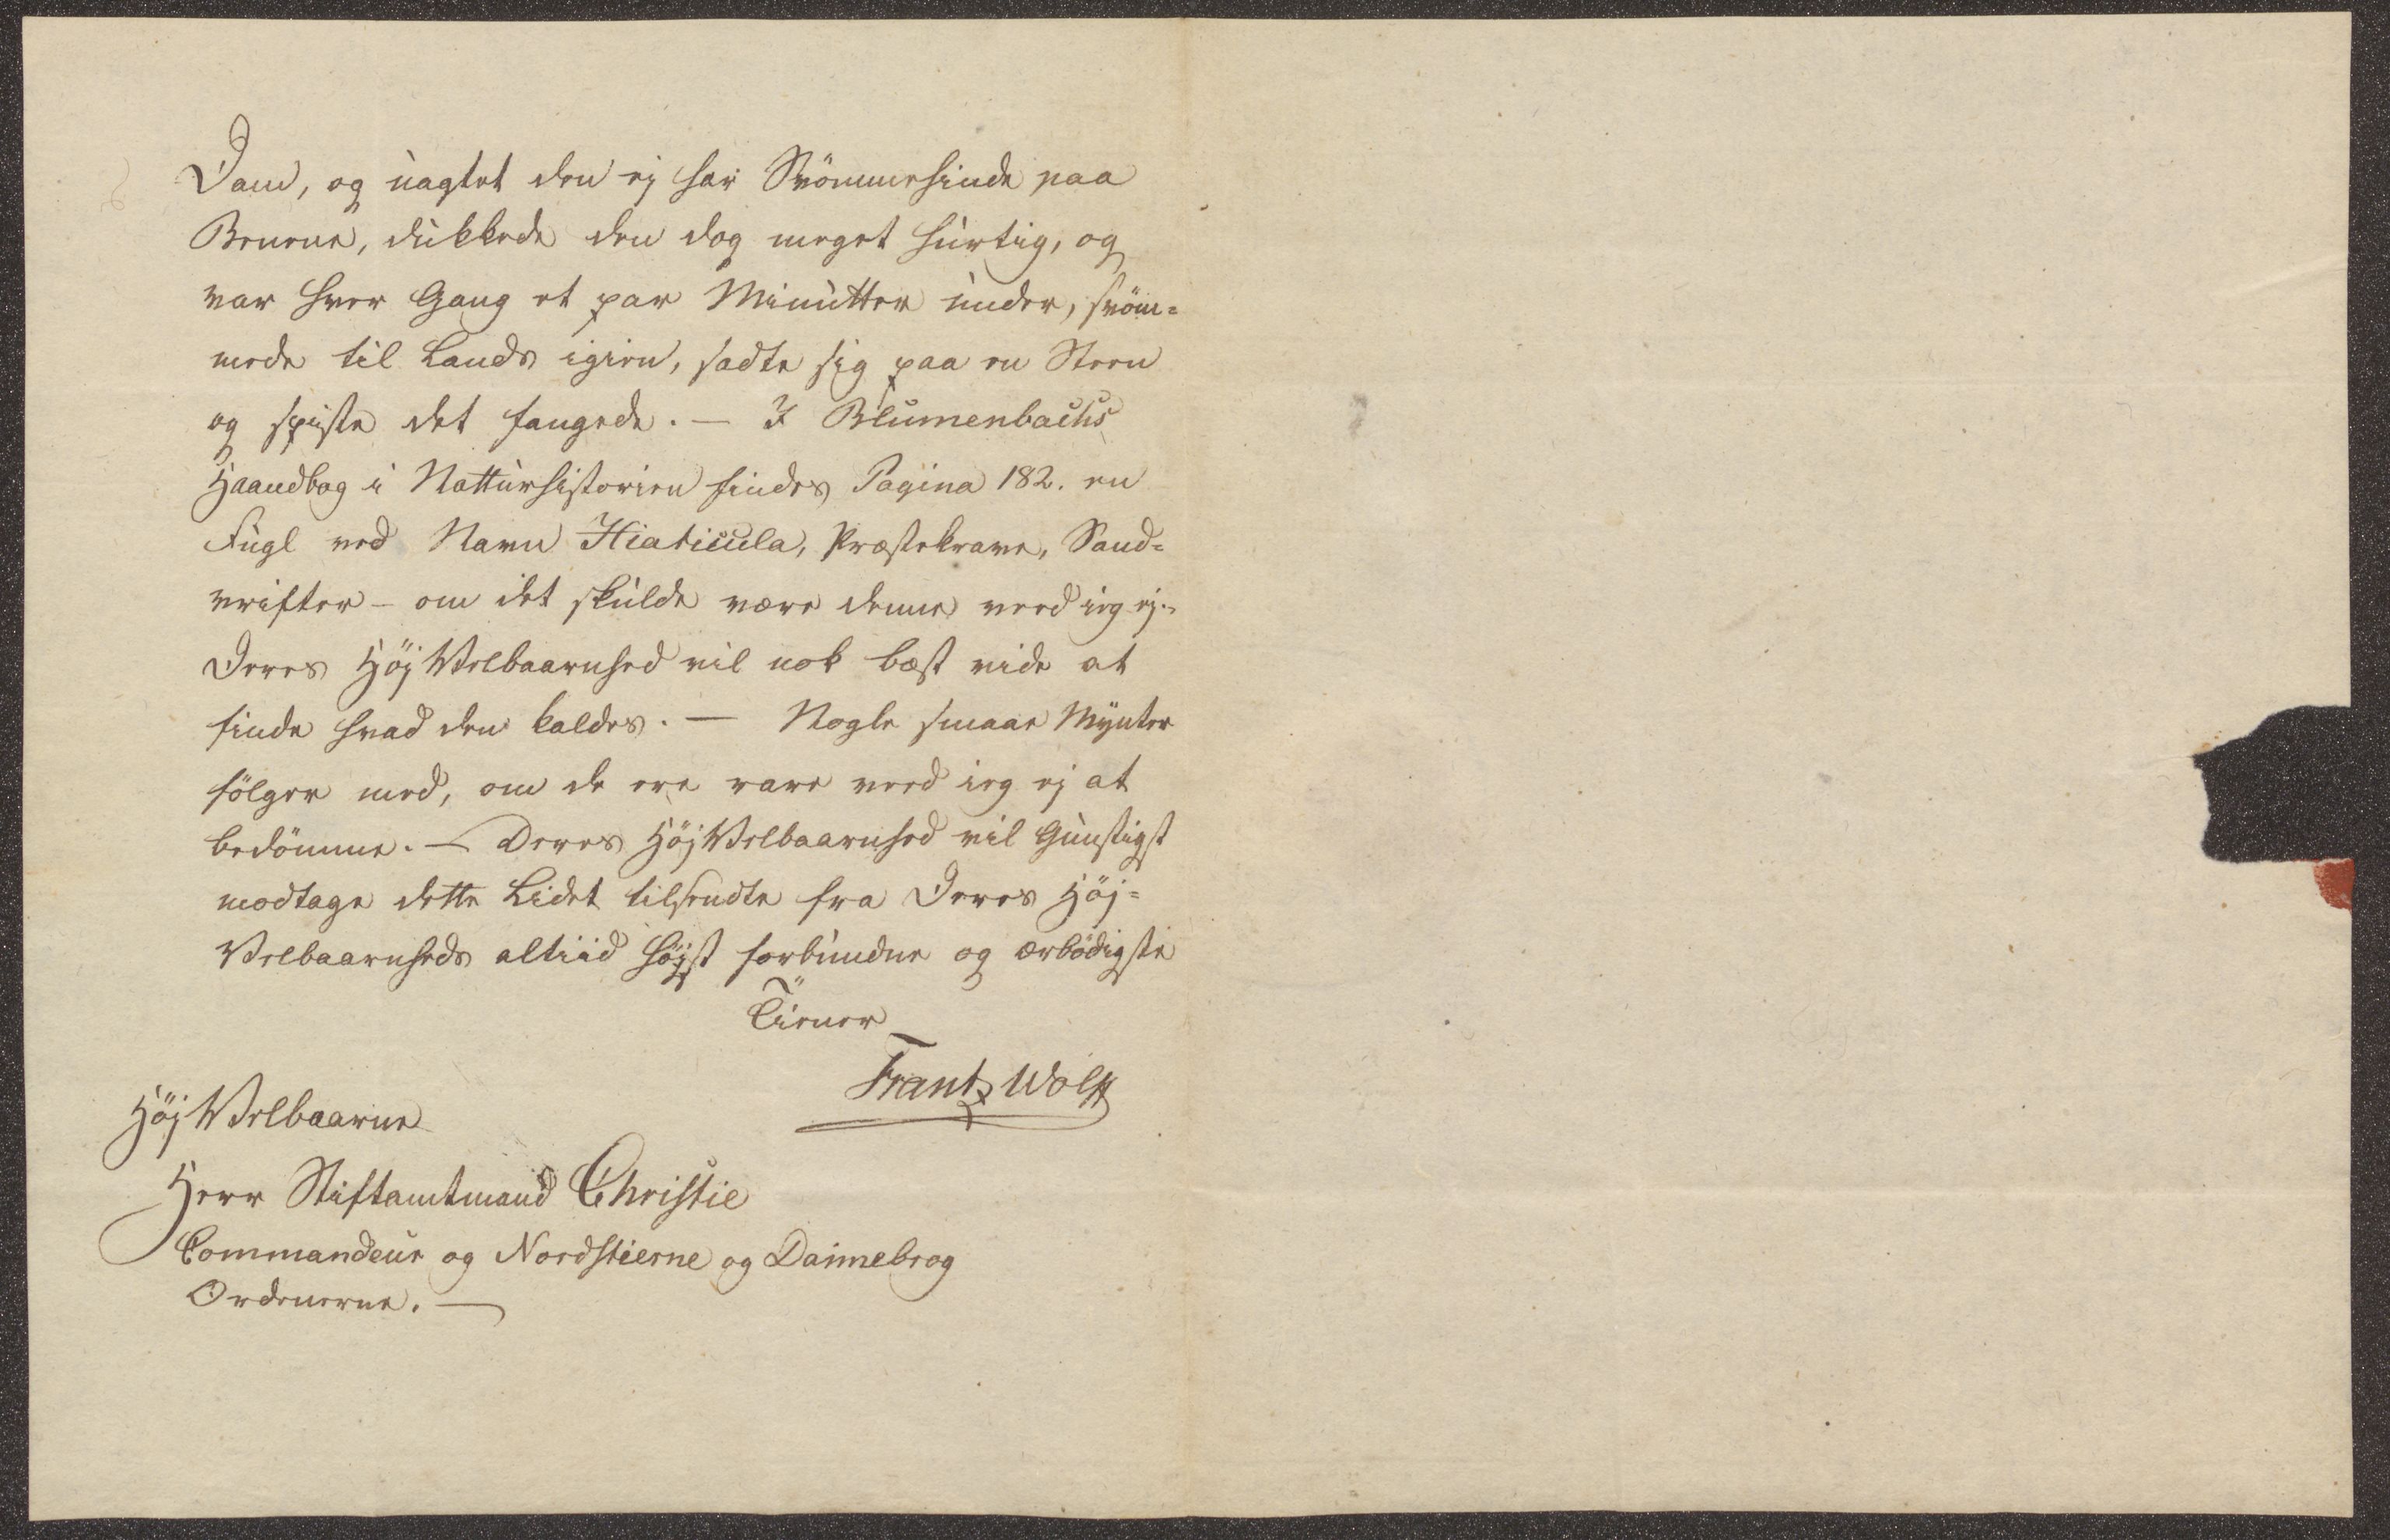 Dam, og uagtet den ej har Svömmehinde paa
Benene, dukkede den dog meget hurtig, og
var hver Gang et par Minutter under, svöm=
mede til Lands igien, sadte sig paa en Steen
og spiste det fangede. — I Blumenbachs
Haandbog i Natturhistorien findes Pagina 182. en
Fugl ved Navn Hiaticula, Præstekrave, Sand=
vrifter – om det skulde være denne veed ieg ej.
Deres HöjVelbaarnhed vil nok bæst vide at
finde hvad den kaldes. — Nogle smaae Mÿnter
fölger med, om de ere rare veed ieg ej at
bedömme. — Deres HöjVelbaarnhed vil Gunstigst
modtage dette Lidet tilsendte fra Deres Höj=
Velbaarnheds altiid höjst forbundne og ærbödigste
Tiener
Frantz Wolff
HöjVelbaarne
Herr Stiftamtmand Christie
Commandeur og Nordstierne og Dannebrog
Ordenerne. —